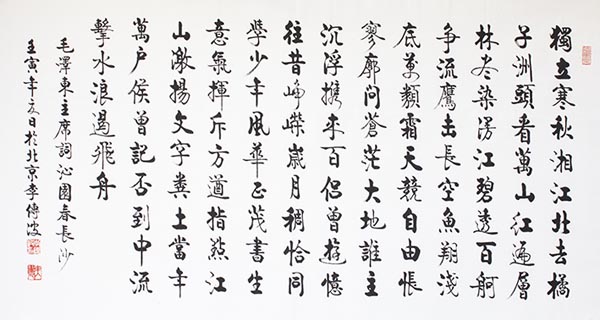 獨立寒秋湘江北去橘
子洲頭看萬山红遍層
林尽染漫江碧透百舸
争流鷹击長空魚翔淺
底萬類霜天競自由悵
寥廓问蒼茫大地誰主
沉浮携來百侣曾遊憶
往昔峥嶸嵗月稠恰同
學少年風華正茂書生
意氣揮斥方遒指點江
山激揚文字糞土當年
萬户侯曾記否到中流
擊水浪遏飛舟
毛澤東主席詞沁園春長沙
壬寅年夏日於北京李傳波